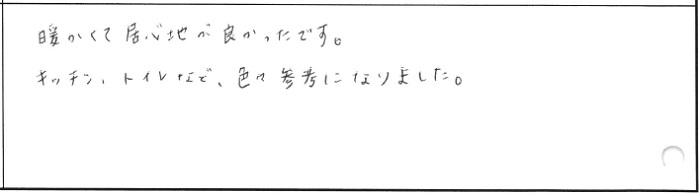 暖かくて居心地が良かったです。
キッチン、トイレなど、色々参考になりました。